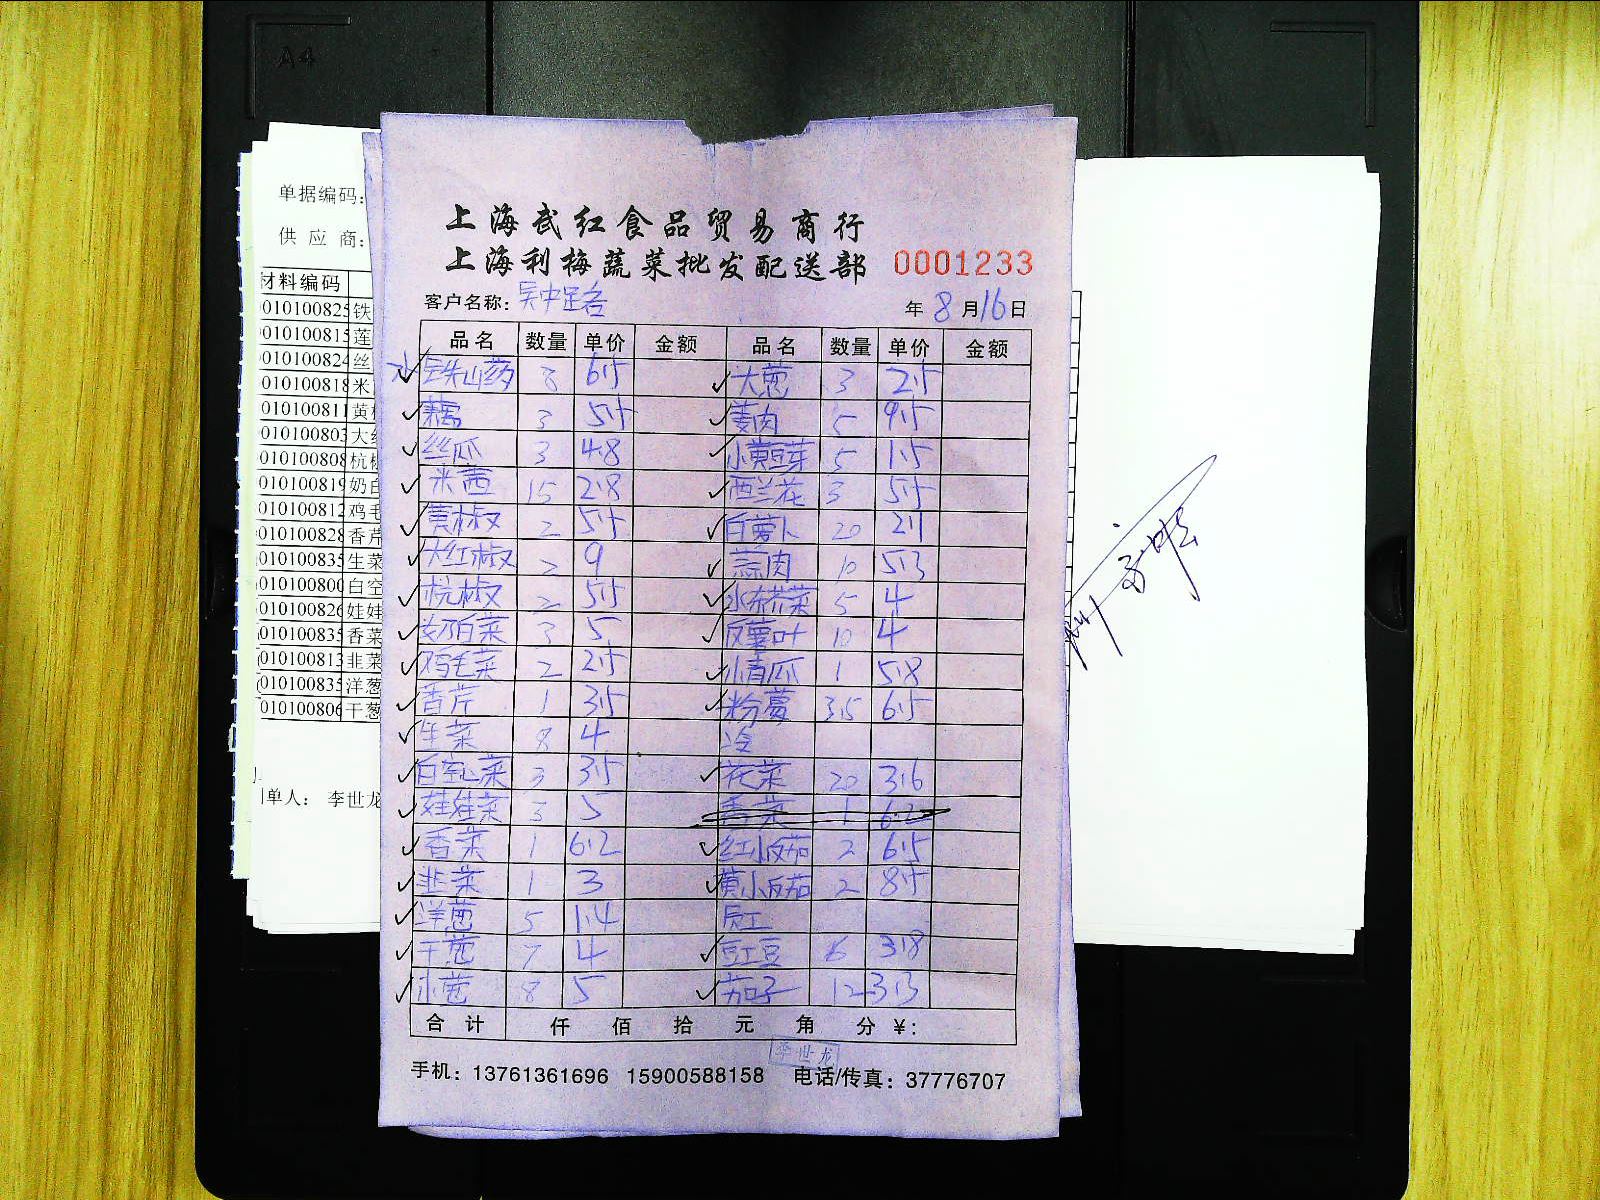 A4
单据编码：
供 应 商：
材料编码
010100825 铁
010100815 莲
010100824 丝
010100818 米
010100811 黄
010100803 大
010100808 杭
010100819 奶白
010100812 鸡毛
010100828 香芹
010100835 生菜
010100800 白空
010100826 娃娃
010100835 香菜
010100813 韭菜
010100835 洋葱
010100806 干葱
单人： 李世龙
上海武红食品贸易商行
上海利梅蔬菜批发配送部 0001233
客户名称： 年 8 月 16 日
品名 数量 单价 金额 品名 数量 单价 金额
铁山药 8 6.5 大葱 3 2.5
藕 3 5.5 姜肉 5 9.5
丝瓜 3 4.8 小黄豆芽 5 1.5
米茜 15 2.8 西兰花 3 5.5
黄椒 2 5.5 白萝卜 20 2.1
大红椒 2 9 蒜肉 10 5.3
杭椒 2 5.5 水东芥菜 5 4
奶白菜 3 5 反薯叶 10 4
鸡毛菜 2 2.5 小青瓜 1 5.8
香芹 1 3.5 粉萝 3.5 6.5
生菜 8 4
白空心菜 3 3.5 花菜 20 3.6
娃娃菜 3 5 香菜 1 6.2
香菜 1 6.2 红小反茄 2 6.5
韭菜 1 3 黄小反茄 2 8.5
洋葱 5 1.4
干葱 7 4 豇豆 6 3.8
小葱 8 5 茄子 12 3.3
合 计 仟 佰 拾 元 角 分 ¥：
李世龙
手机：13761361696 15900588158 电话/传真：37776707